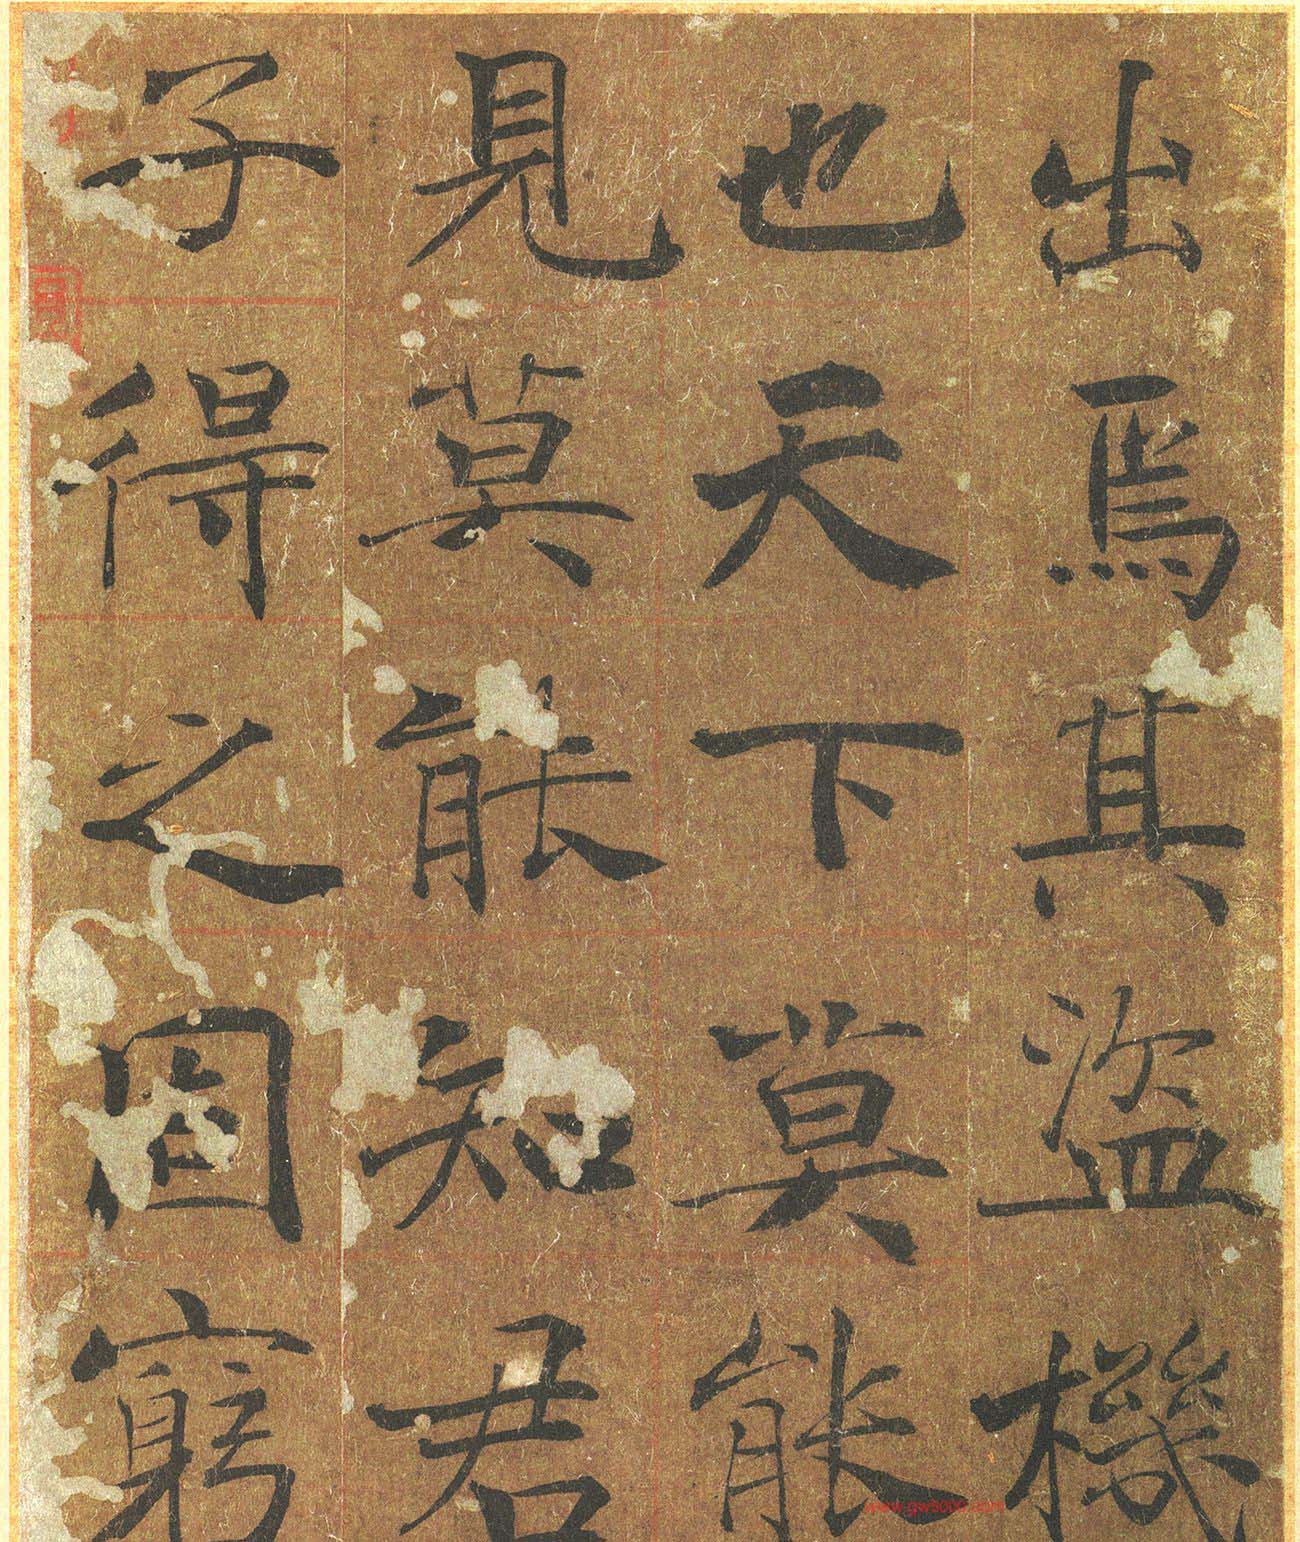 出焉其盜機
也天下莫能
見莫能知君
子得之固窮
www.gw8000.com